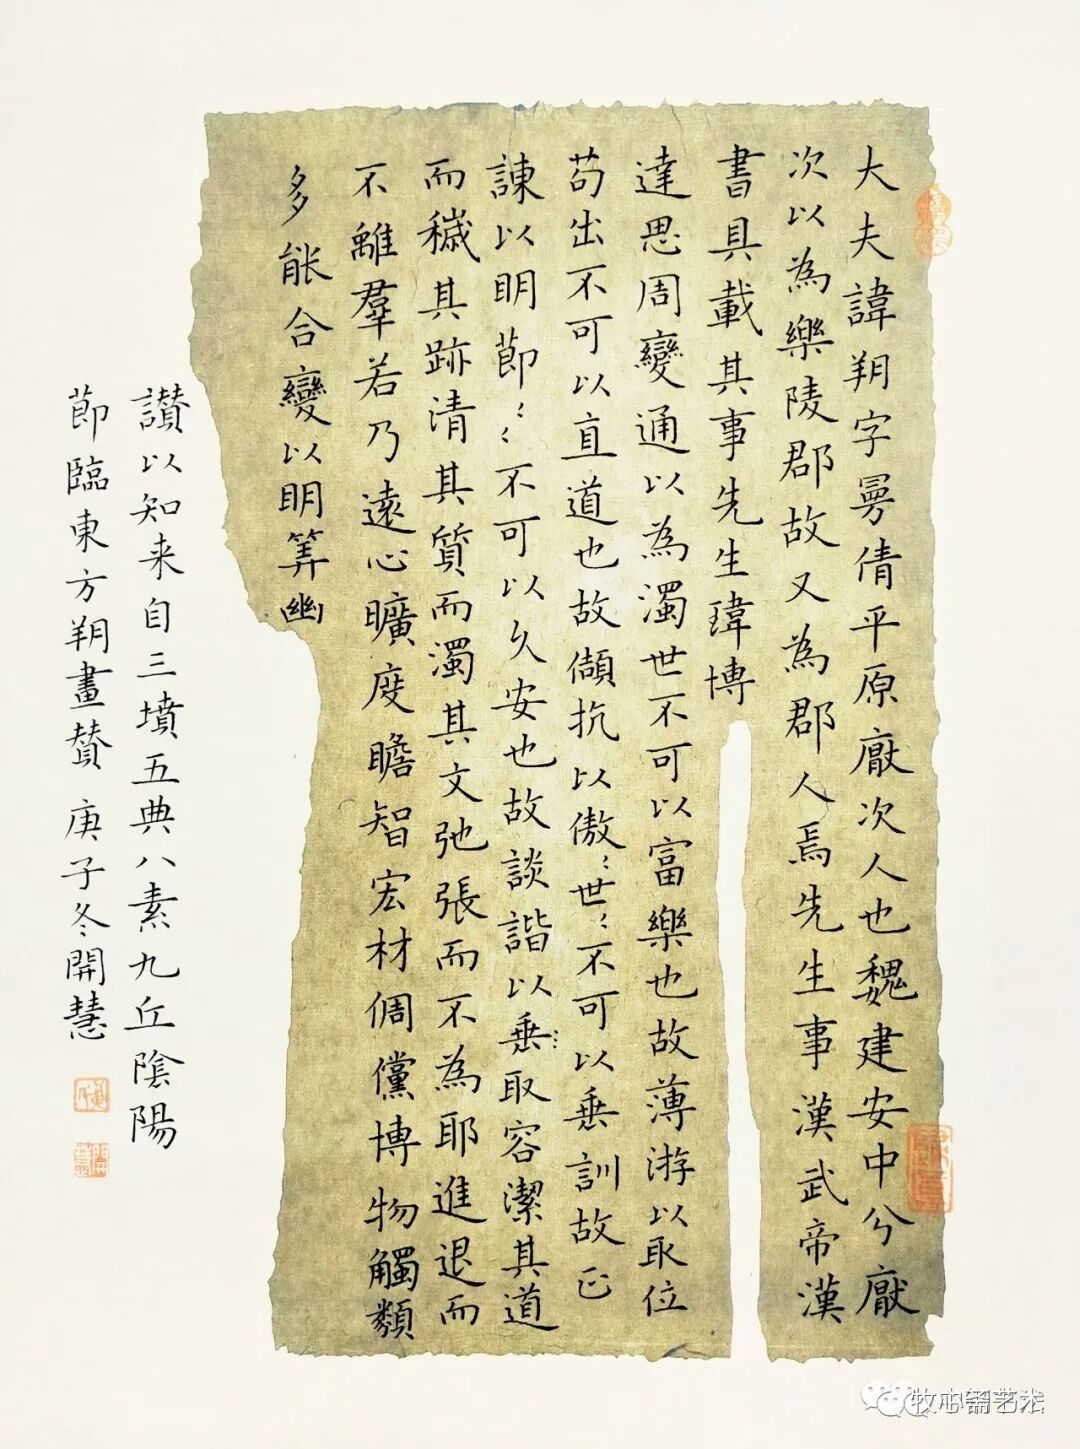 大夫諱朔字曼倩平原厭次人也魏建安中兮厭
次以為樂陵郡故又為郡人焉先生事漢武帝漢
書具載其事先生瑋博
達思周變通以為濁世不可以富樂也故薄游以取位
苟出不可以直道也故傾抗以傲〻世〻不可以垂訓故正
諫以明節〻不可以久安也故談諧以垂取容潔其道
而穢其跡清其質而濁其文弛張而不為耶進退而
不離羣若乃遠心曠度瞻智宏材倜儻博物觸類
多能合變以明筭幽
讃以知来自三墳五典八素九丘陰陽
節臨東方朔畫賛 庚子冬開慧
牧心斋艺术